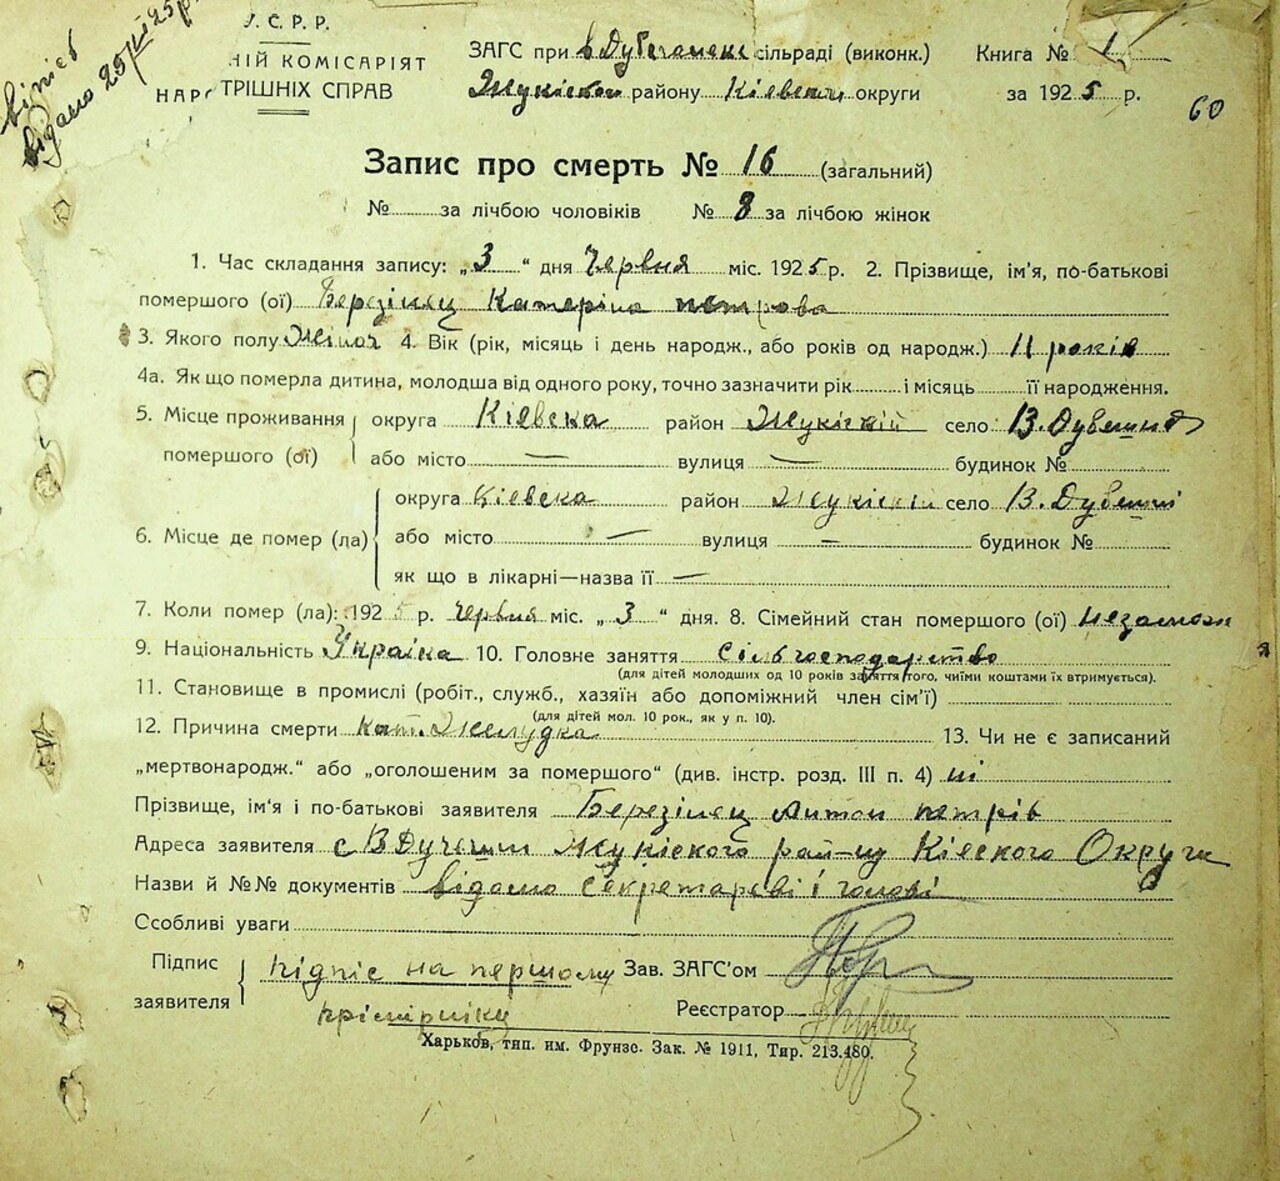 витяг
видано 25/VII 25 р.
У. С. Р. Р.
НІЙ КОМІСАРІЯТ
НАРО ТРІШНІХ СПРАВ
ЗАГС при сільраді (виконк.)
району Кіевськ округи
Книга № 1
за 1925 р.
60
Запис про смерть № 16 (загальний)
№ за лічбою чоловіків № 8 за лічбою жінок
1. Час складання запису: „3“ дня Червня міс. 1925 р. 2. Прізвище, ім’я, по-батькові
помершого (ої) Березінец Катеріна петрова
3. Якого полу Жіноч 4. Вік (рік, місяць і день народж., або років од народж.) 11 років
4а. Як що померла дитина, молодша від одного року, точно зазначити рік і місяць її народження.
5. Місце проживання округа Кіевска район село
помершого (ої) або місто — вулиця — будинок №
округа Кіевска район село
6. Місце де помер (ла) або місто — вулиця — будинок №
як що в лікарні—назва її —
7. Коли помер (ла): 1925 р. Червня міс. „3“ дня. 8. Сімейний стан помершого (ої)
9. Національність Україка 10. Головне заняття сільгосподарство
(для дітей молодших од 10 років заняття того, чиїми коштами їх втримується).
11. Становище в промислі (робіт., служб., хазяїн або допоміжний член сім’ї)
(для дітей мол. 10 рок., як у п. 10).
12. Причина смерти Кат. Желудка 13. Чи не є записаний
„мертвонародж.“ або „оголошеним за помершого“ (див. інстр. розд. III п. 4) ні
Прізвище, ім’я і по-батькові заявителя Березінец Антон петрів
Адреса заявителя с В Округи
Назви й №№ документів відомо секретареві і голові
Особливі уваги
Підпис підпіс на першому Зав. ЗАГС’ом
заявителя прімірніку Реєстратор
Харьков, тип. им. Фрунзе. Зак. № 1911, Тир. 213.480.